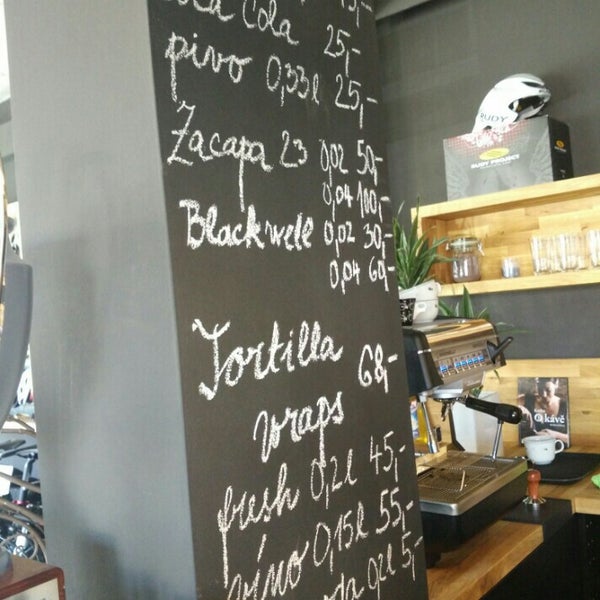 Cola 25,-
pivo 0,33l 25,-
Zacapa 23 0,02 50,-
0,04 100,-
Blackwell 0,02 30,-
0,04 60,-
Tortilla
wraps 68,-
fresh 0,2l 45,-
víno 0,15l 55,-
0,2l 5,-
RUDY
RUDY PROJECT
O kávě